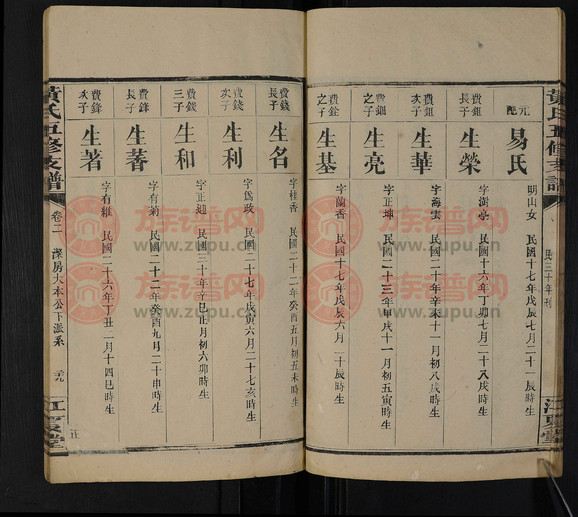 黃氏五修支譜
民國三十年刊
江夏堂
元配
易氏
明山女 民國十七年戊辰七月二十一辰時生
費鉅長子
生榮
字澍亭 民國十六年丁卯七月二十八戌時生
費鉅次子
生華
字海雲 民國二十年辛未十一月二十八戌時生
費鉅之子
生亮
字正坤 民國二十三年甲戌十一月初五寅時生
費銓之子
生基
字蘭香 民國十七年戊辰六月二十辰時生
費錢長子
生名
字桂香 民國二十二年癸酉五月初五未時生
費錢次子
生利
字為政 民國二十七年戊寅六月二十七亥時生
費錢三子
生和
字正廸 民國三十年辛巳正月初六卯時生
費鋒長子
生蓍
字有菊 民國二十二年癸酉九月二十申時生
費鋒次子
生著
字有維 民國二十六年丁丑一月十四巳時生
黃氏五修支譜
卷二
深房大本公下派系
江夏堂
族譜网
www.zupu.cn